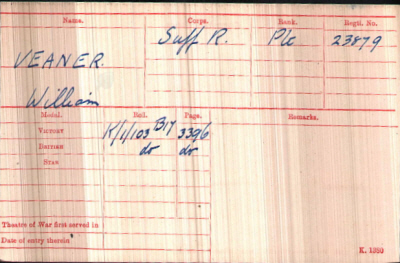 Name. Corps. Rank. Regtl. No.
VEANER. Suff R. Pte 23879
William
Medal. Roll. Page. Remarks.
VICTORY K/1/103 B17 3396
BRITISH do do
STAR
Theatre of War first served in
Date of entry therein
K. 1380